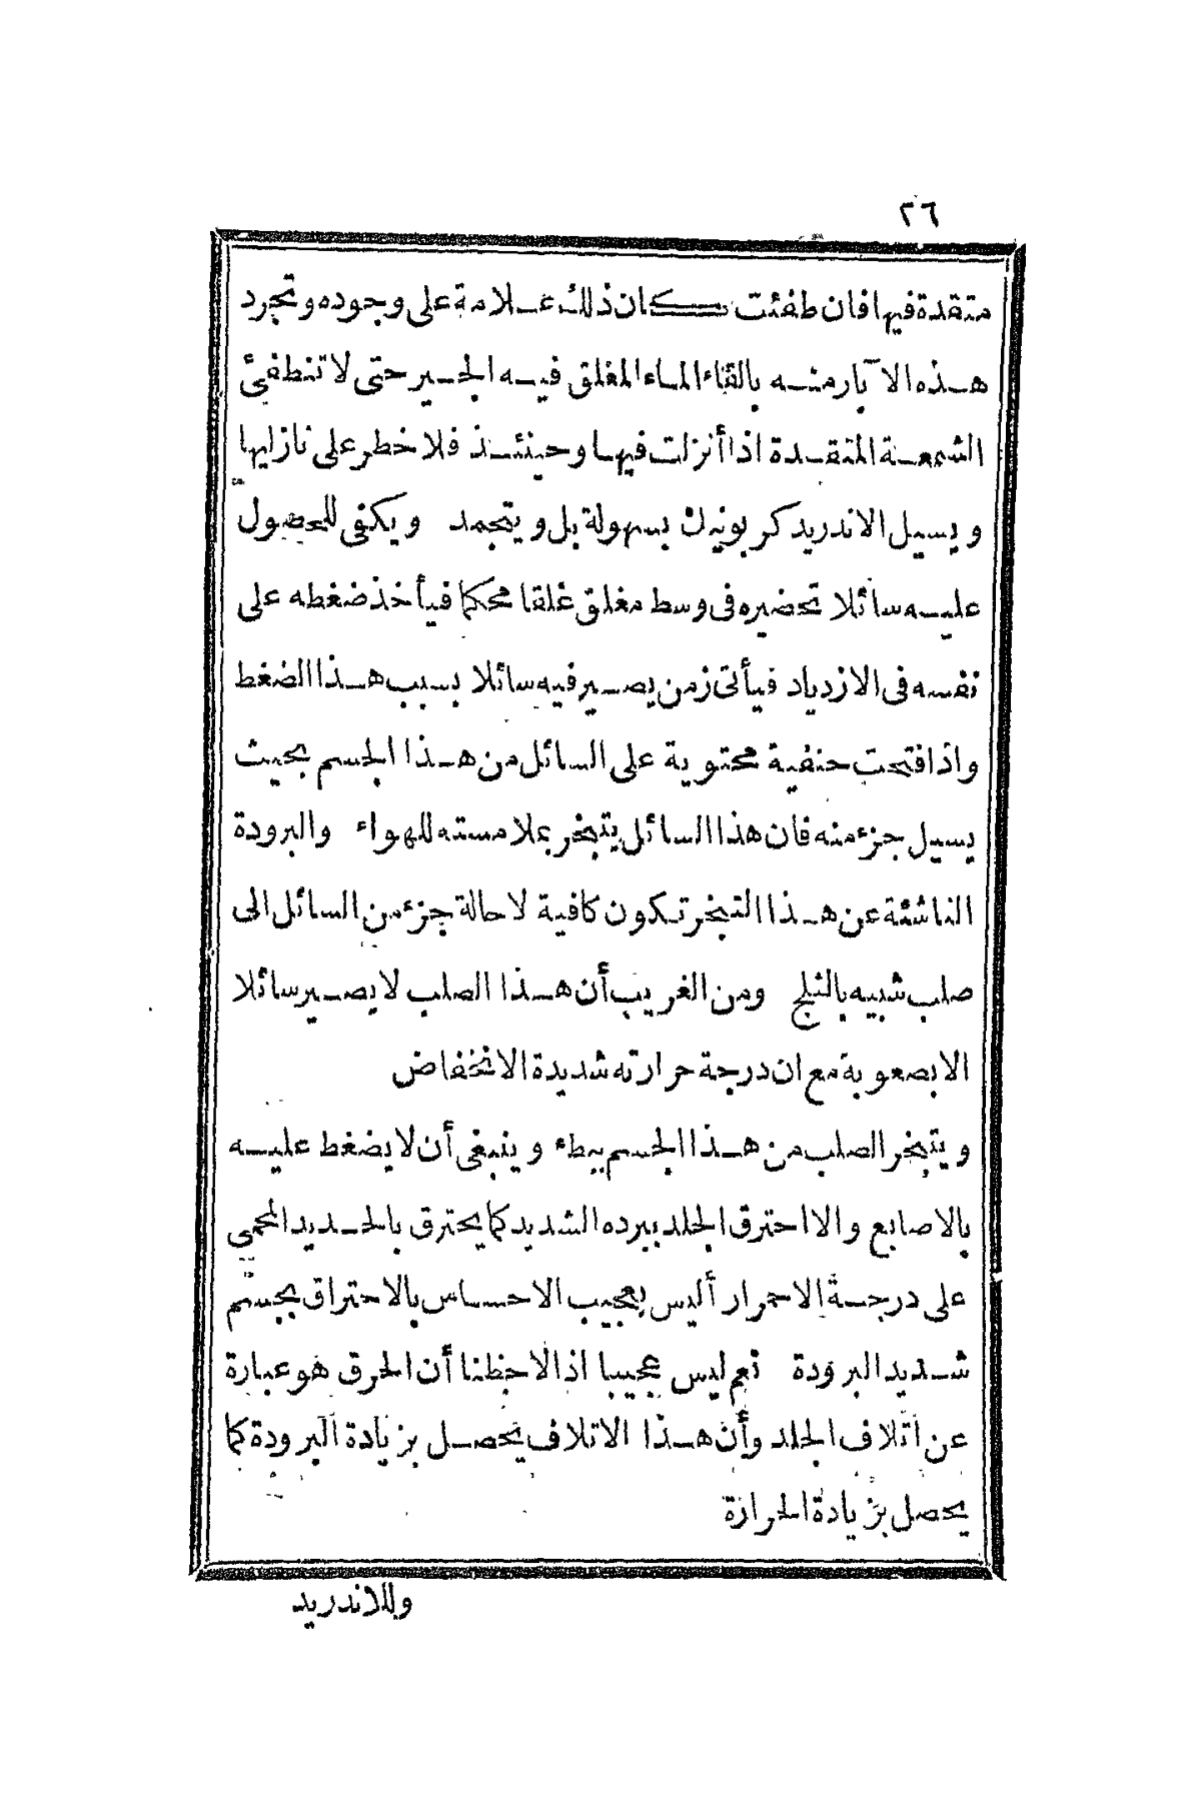 ٢٦
متقدة فيها فان طفئت كان ذلك علامة على وجوده وتجرد
هذه الآبار منه بالقاء الماء المغلق فيه الجير حتى لا تنطفئ
الشمعة المتقدة اذا أنزلت فيها وحينئذ فلا خطر على نازليها
ويسيل الاندريد كربونيك بسهولة بل ويتجمد ويكفى للحصول
عليه سائلا تحضيره فى وسط مغلق غلقا محكما فيأخذ ضغطه على
نفسه فى الازدياد فيأتى زمن يصير فيه سائلا بسبب هذا الضغط
واذا فتحت حنفية محتوية على السائل من هذا الجسم بحيث
يسيل جزء منه فان هذا السائل يتبخر بملامسته للهواء والبرودة
الناشئة عن هذا التبخر تكون كافية لاحالة جزء من السائل الى
صلب شبيه بالثلج ومن الغريب أن هذا الصلب لا يصير سائلا
الا بصعوبة مع ان درجة حرارته شديدة الانخفاض
ويتبخر الصلب من هذا الجسم ببطء وينبغى أن لا يضغط عليه
بالاصابع والا احترق الجلد ببرده الشديد كما يحترق بالحديد المحمى
على درجة الاحمرار أليس بعجيب الاحساس بالاحتراق بجسم
شديد البرودة نعم ليس عجيبا اذا لاحظنا أن الحرق هو عبارة
عن اتلاف الجلد وأن هذا الاتلاف يحصل بزيادة البرودة كما
يحصل بزيادة الحرارة
وللاندريد